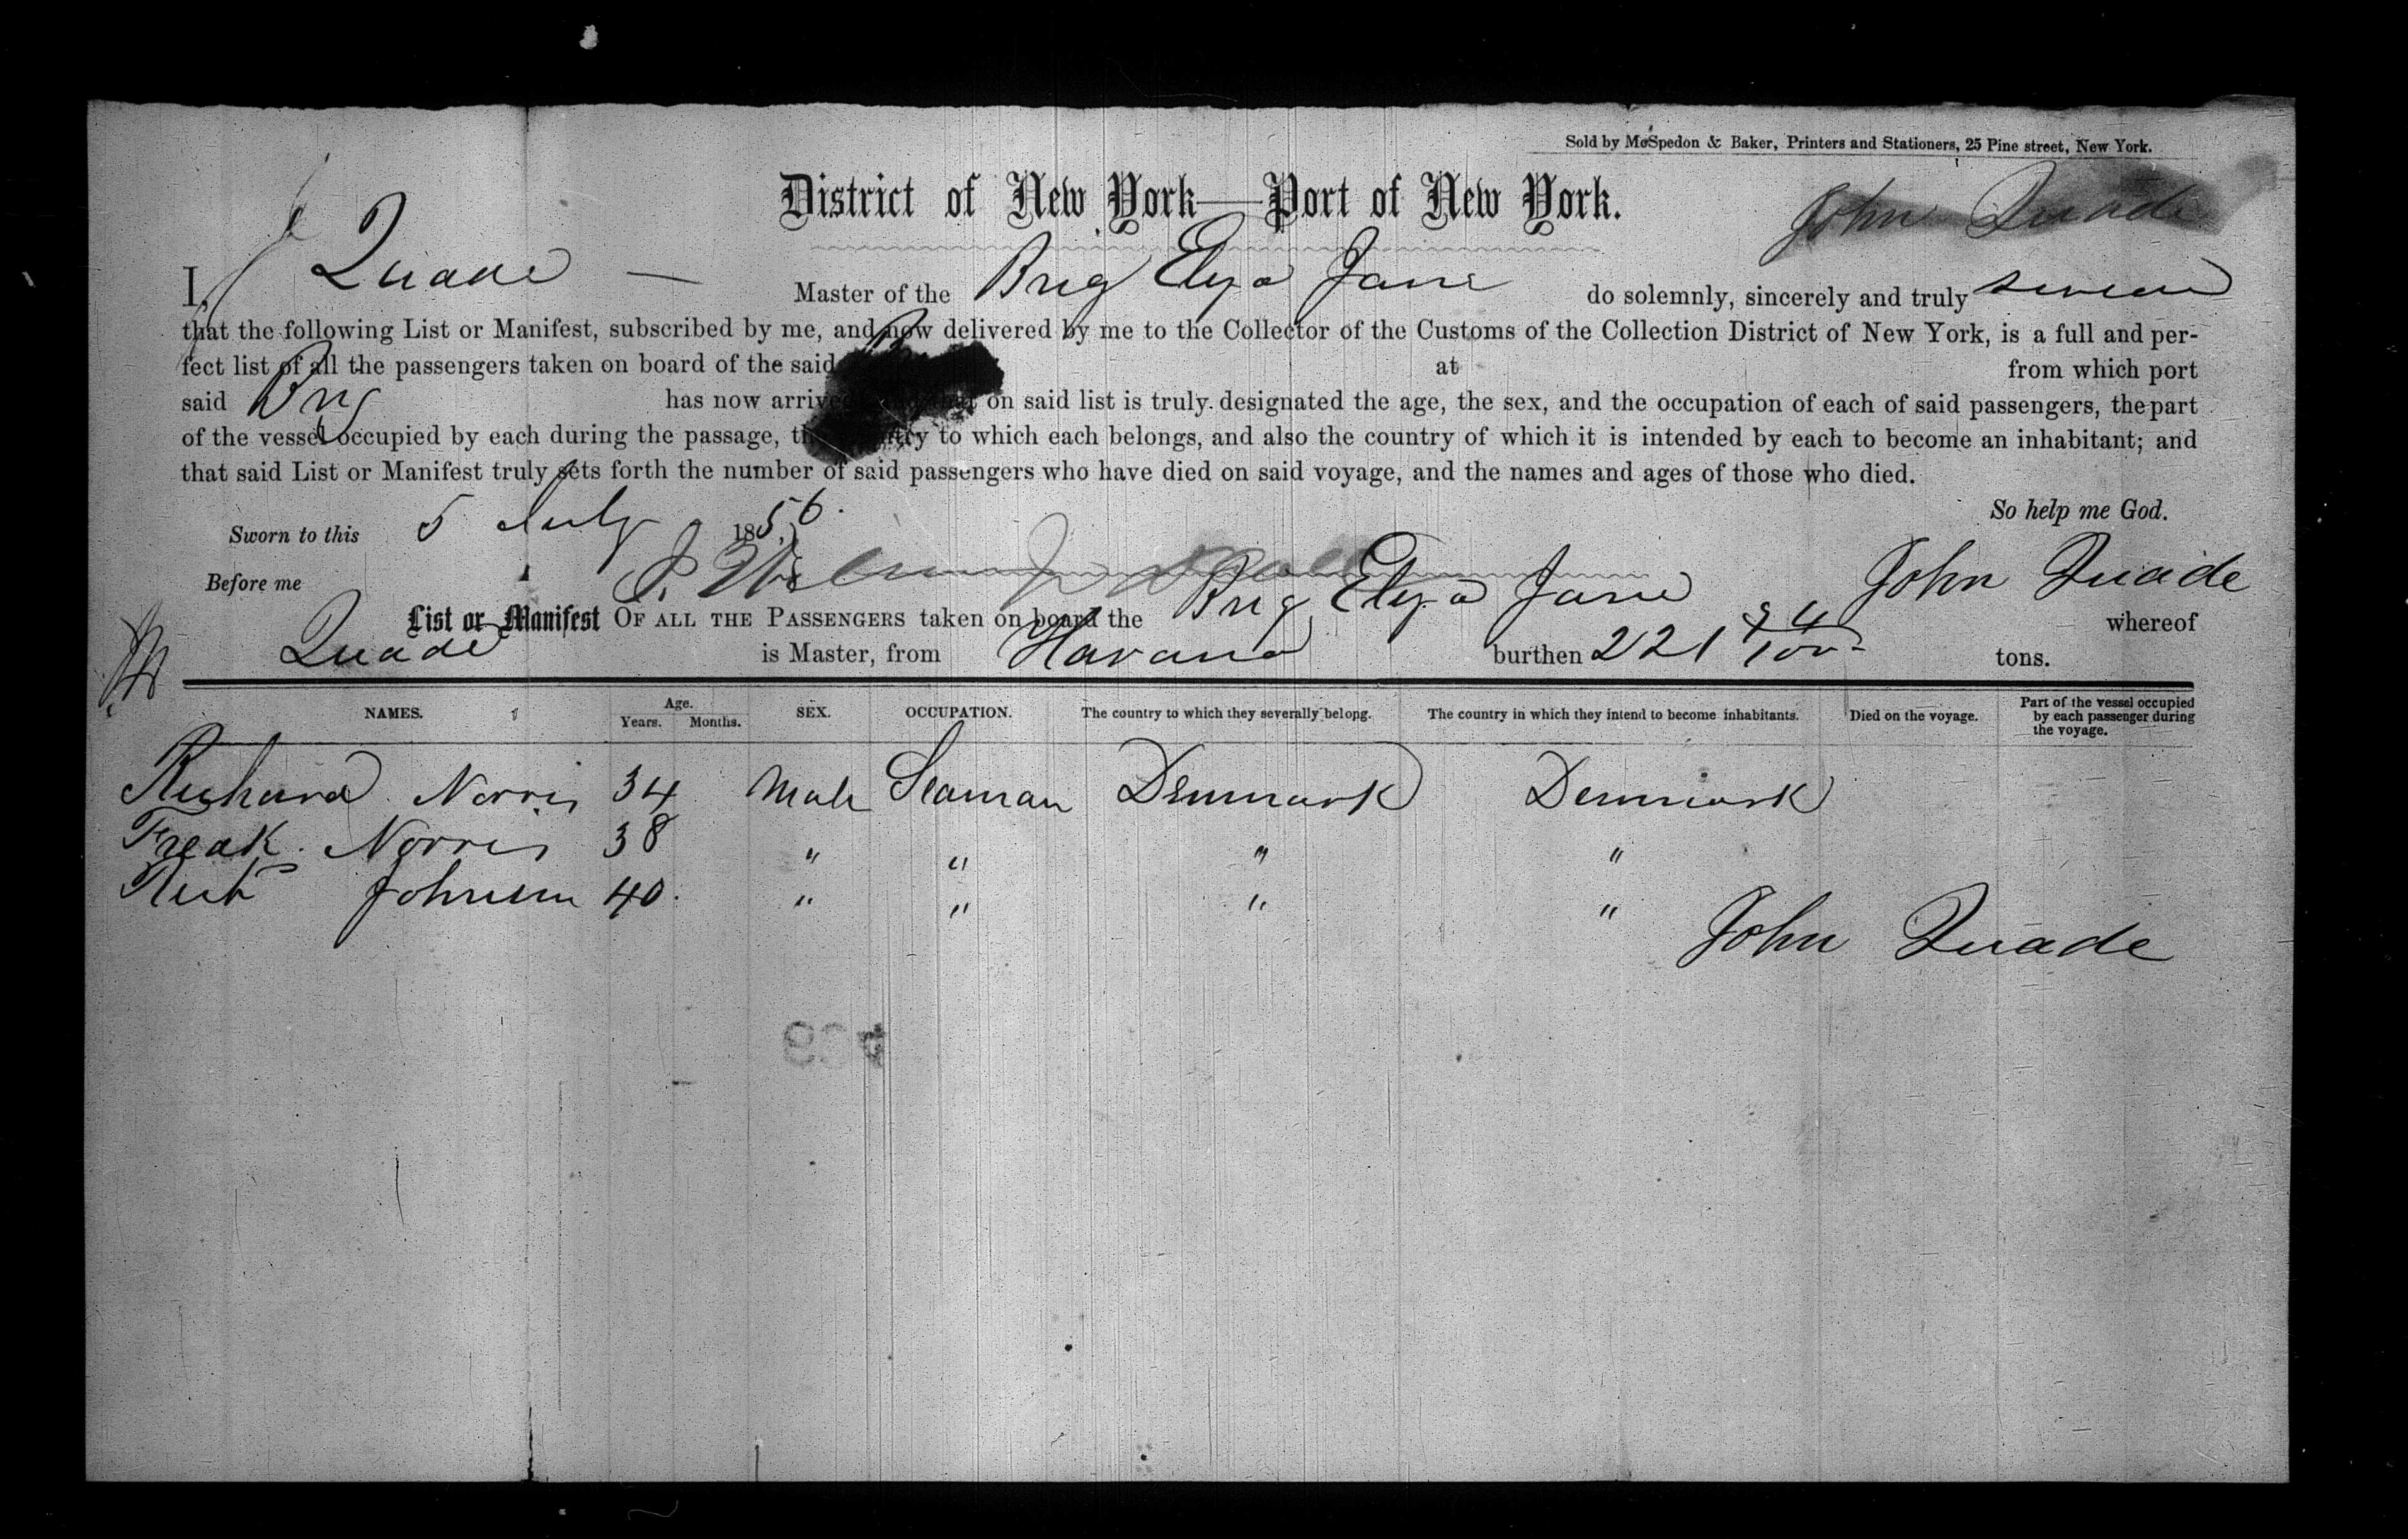 Sold by McSpedon & Baker, Printers and Stationers, 25 Pine street, New York.
District of New York—Port of New York.
John Quade
I, J Quade — Master of the Brig Elyza Jane do solemnly, sincerely and truly swear
that the following List or Manifest, subscribed by me, and now delivered by me to the Collector of the Customs of the Collection District of New York, is a full and per-
fect list of all the passengers taken on board of the said at from which port
said Brig has now arrived on said list is truly designated the age, the sex, and the occupation of each of said passengers, the part
of the vessel occupied by each during the passage, to which each belongs, and also the country of which it is intended by each to become an inhabitant; and
that said List or Manifest truly sets forth the number of said passengers who have died on said voyage, and the names and ages of those who died.
So help me God.
Sworn to this 5 July 1856.
Before me John Quade
List or Manifest OF ALL THE PASSENGERS taken on board the Brig Elyza Jane whereof
Quade is Master, from Havana burthen 221 94/100 tons.
NAMES. Age. Years. Months. SEX. OCCUPATION. The country to which they severally belong. The country in which they intend to become inhabitants. Died on the voyage. Part of the vessel occupied by each passenger during the voyage.
Richard Norris 34 Male Seaman Denmark Denmark
Freak. Norris 38 " " " "
Johnson 40. " " " "
John Quade